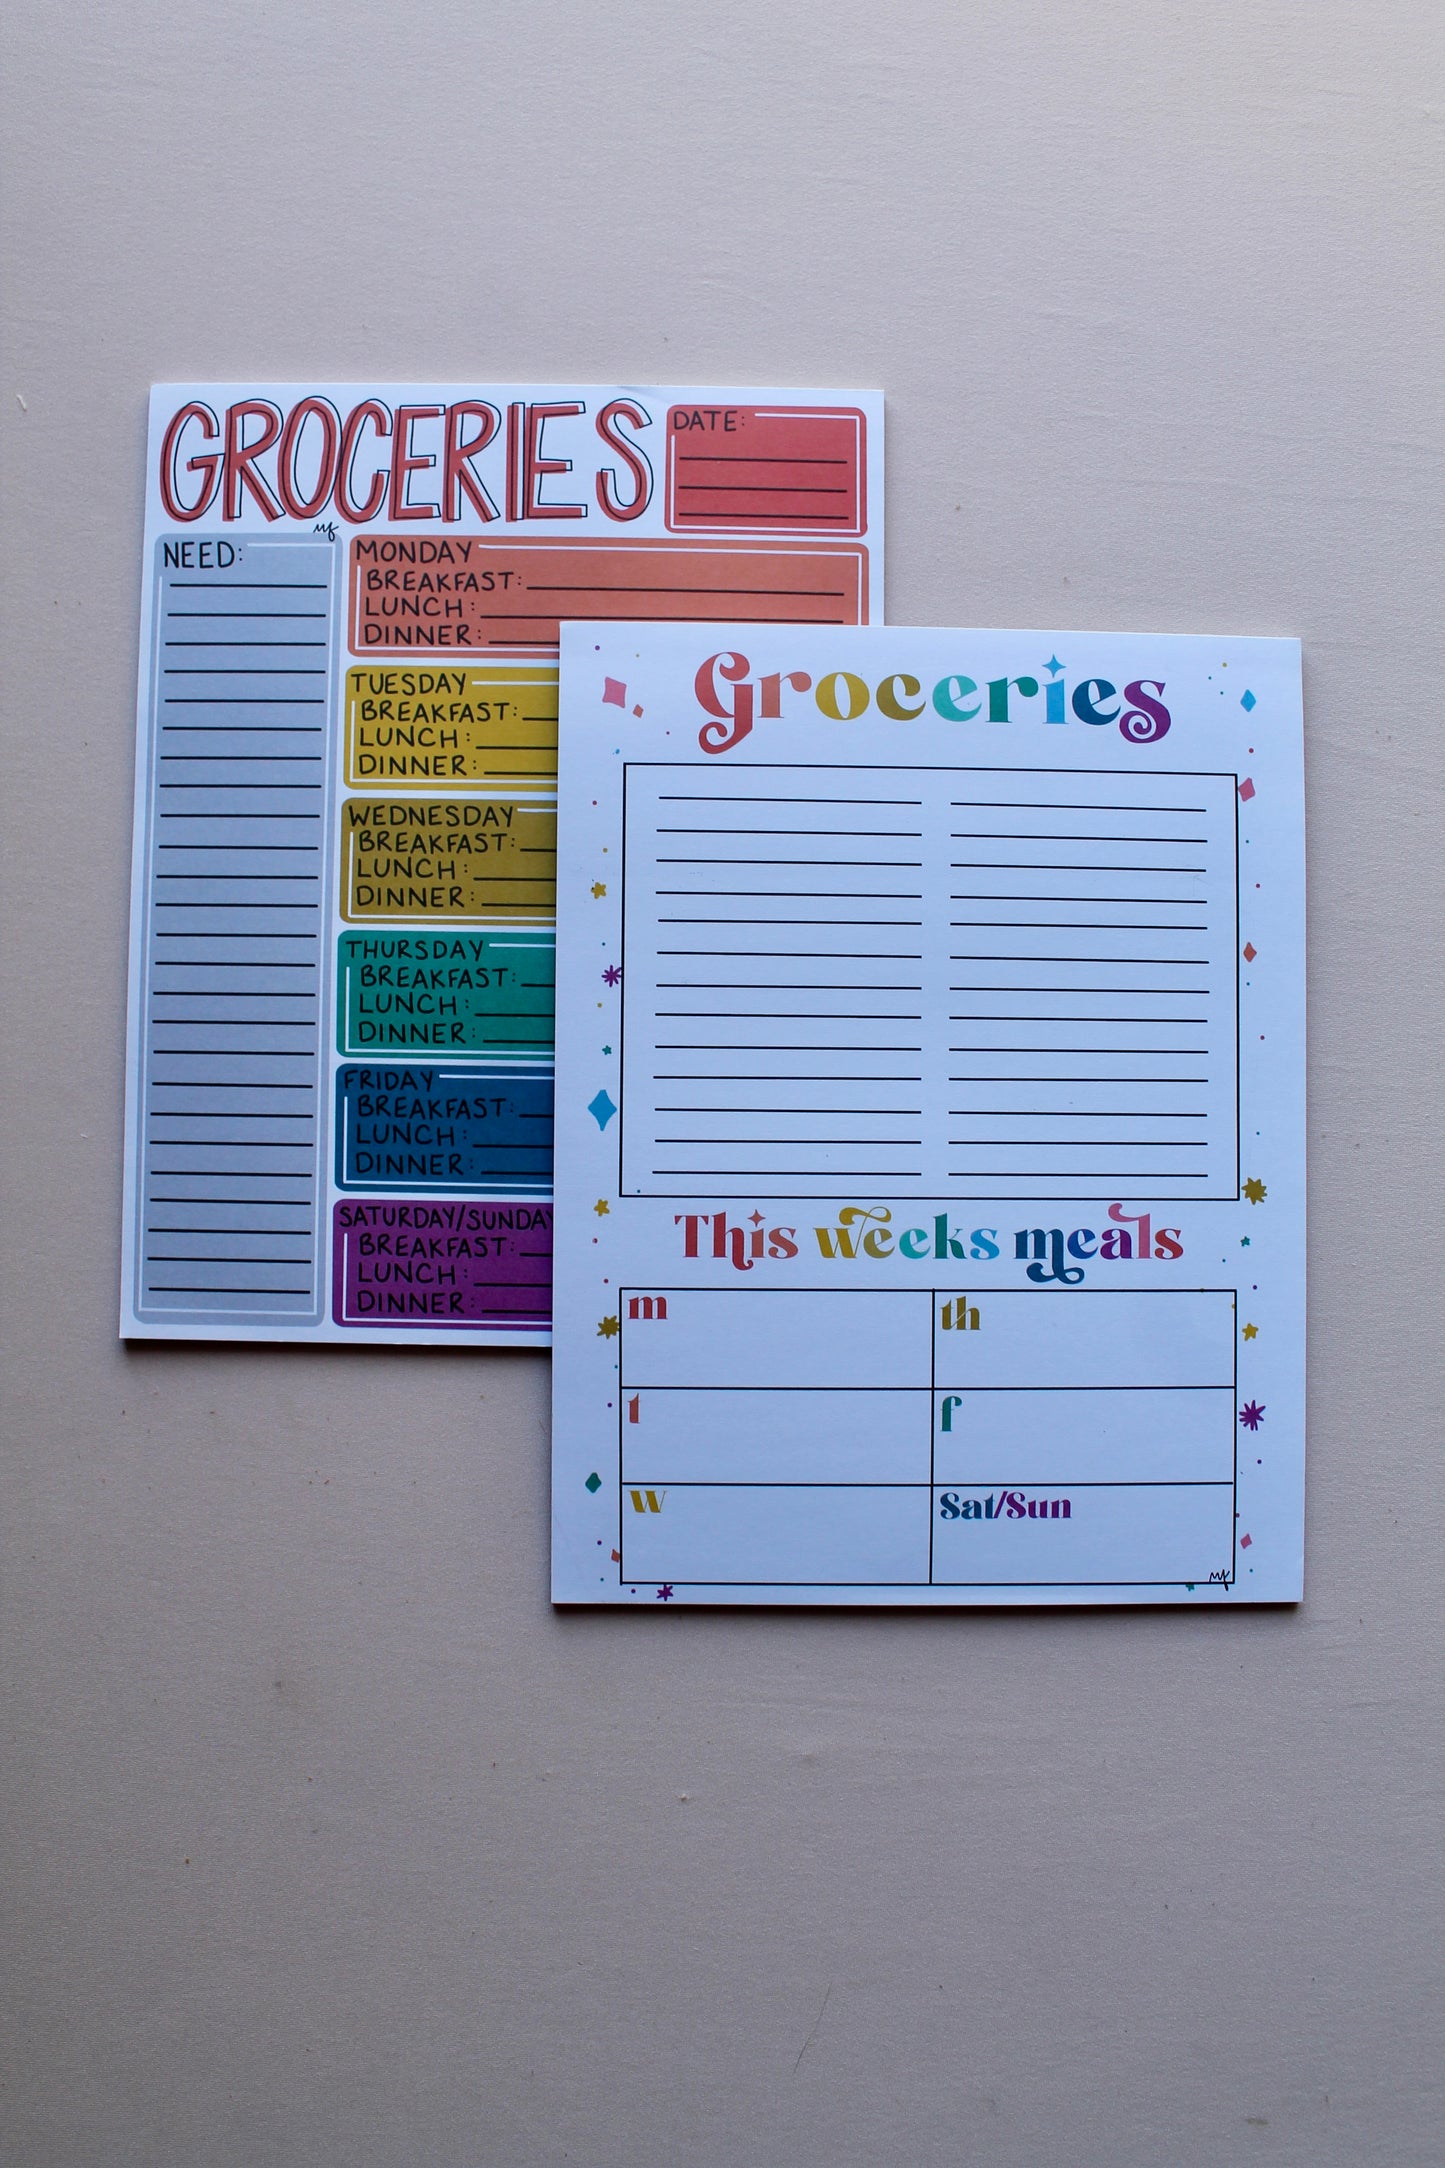 GROCERIES
DATE:
NEED:
MONDAY
BREAKFAST:
LUNCH:
DINNER:
TUESDAY
BREAKFAST:
LUNCH:
DINNER:
WEDNESDAY
BREAKFAST:
LUNCH:
DINNER:
THURSDAY
BREAKFAST:
LUNCH:
DINNER:
FRIDAY
BREAKFAST:
LUNCH:
DINNER:
SATURDAY/SUNDAY
BREAKFAST:
LUNCH:
DINNER:
Groceries
This weeks meals
m
th
t
f
w
Sat/Sun